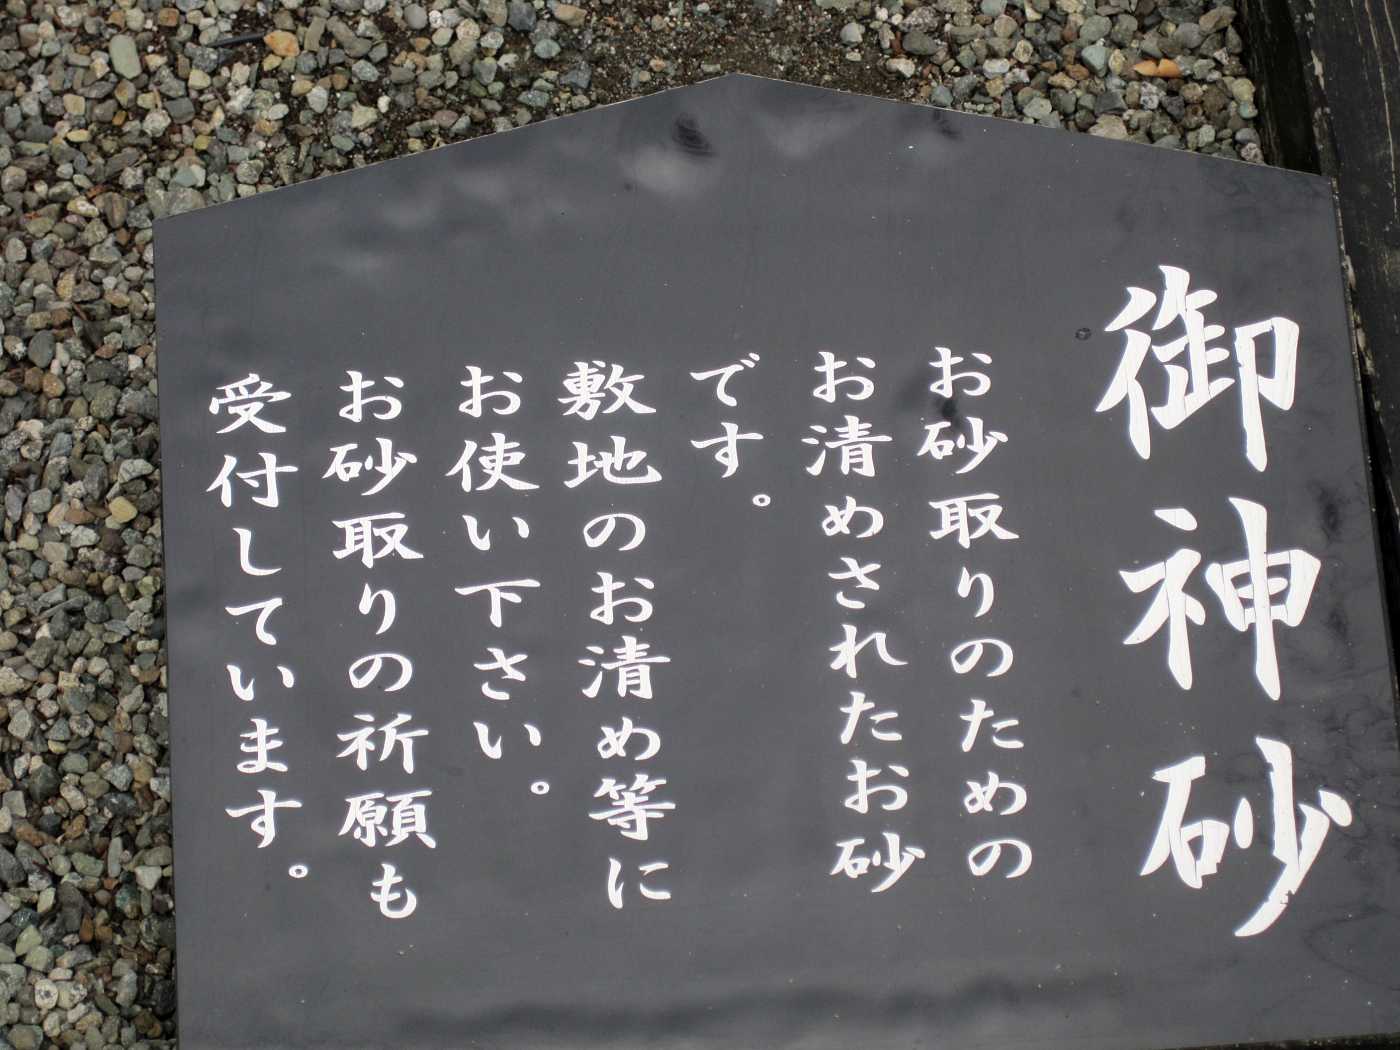 御神砂
お砂取りのための
お清めされたお砂
です。
敷地のお清め等に
お使い下さい。
お砂取りの祈願も
受付しています。